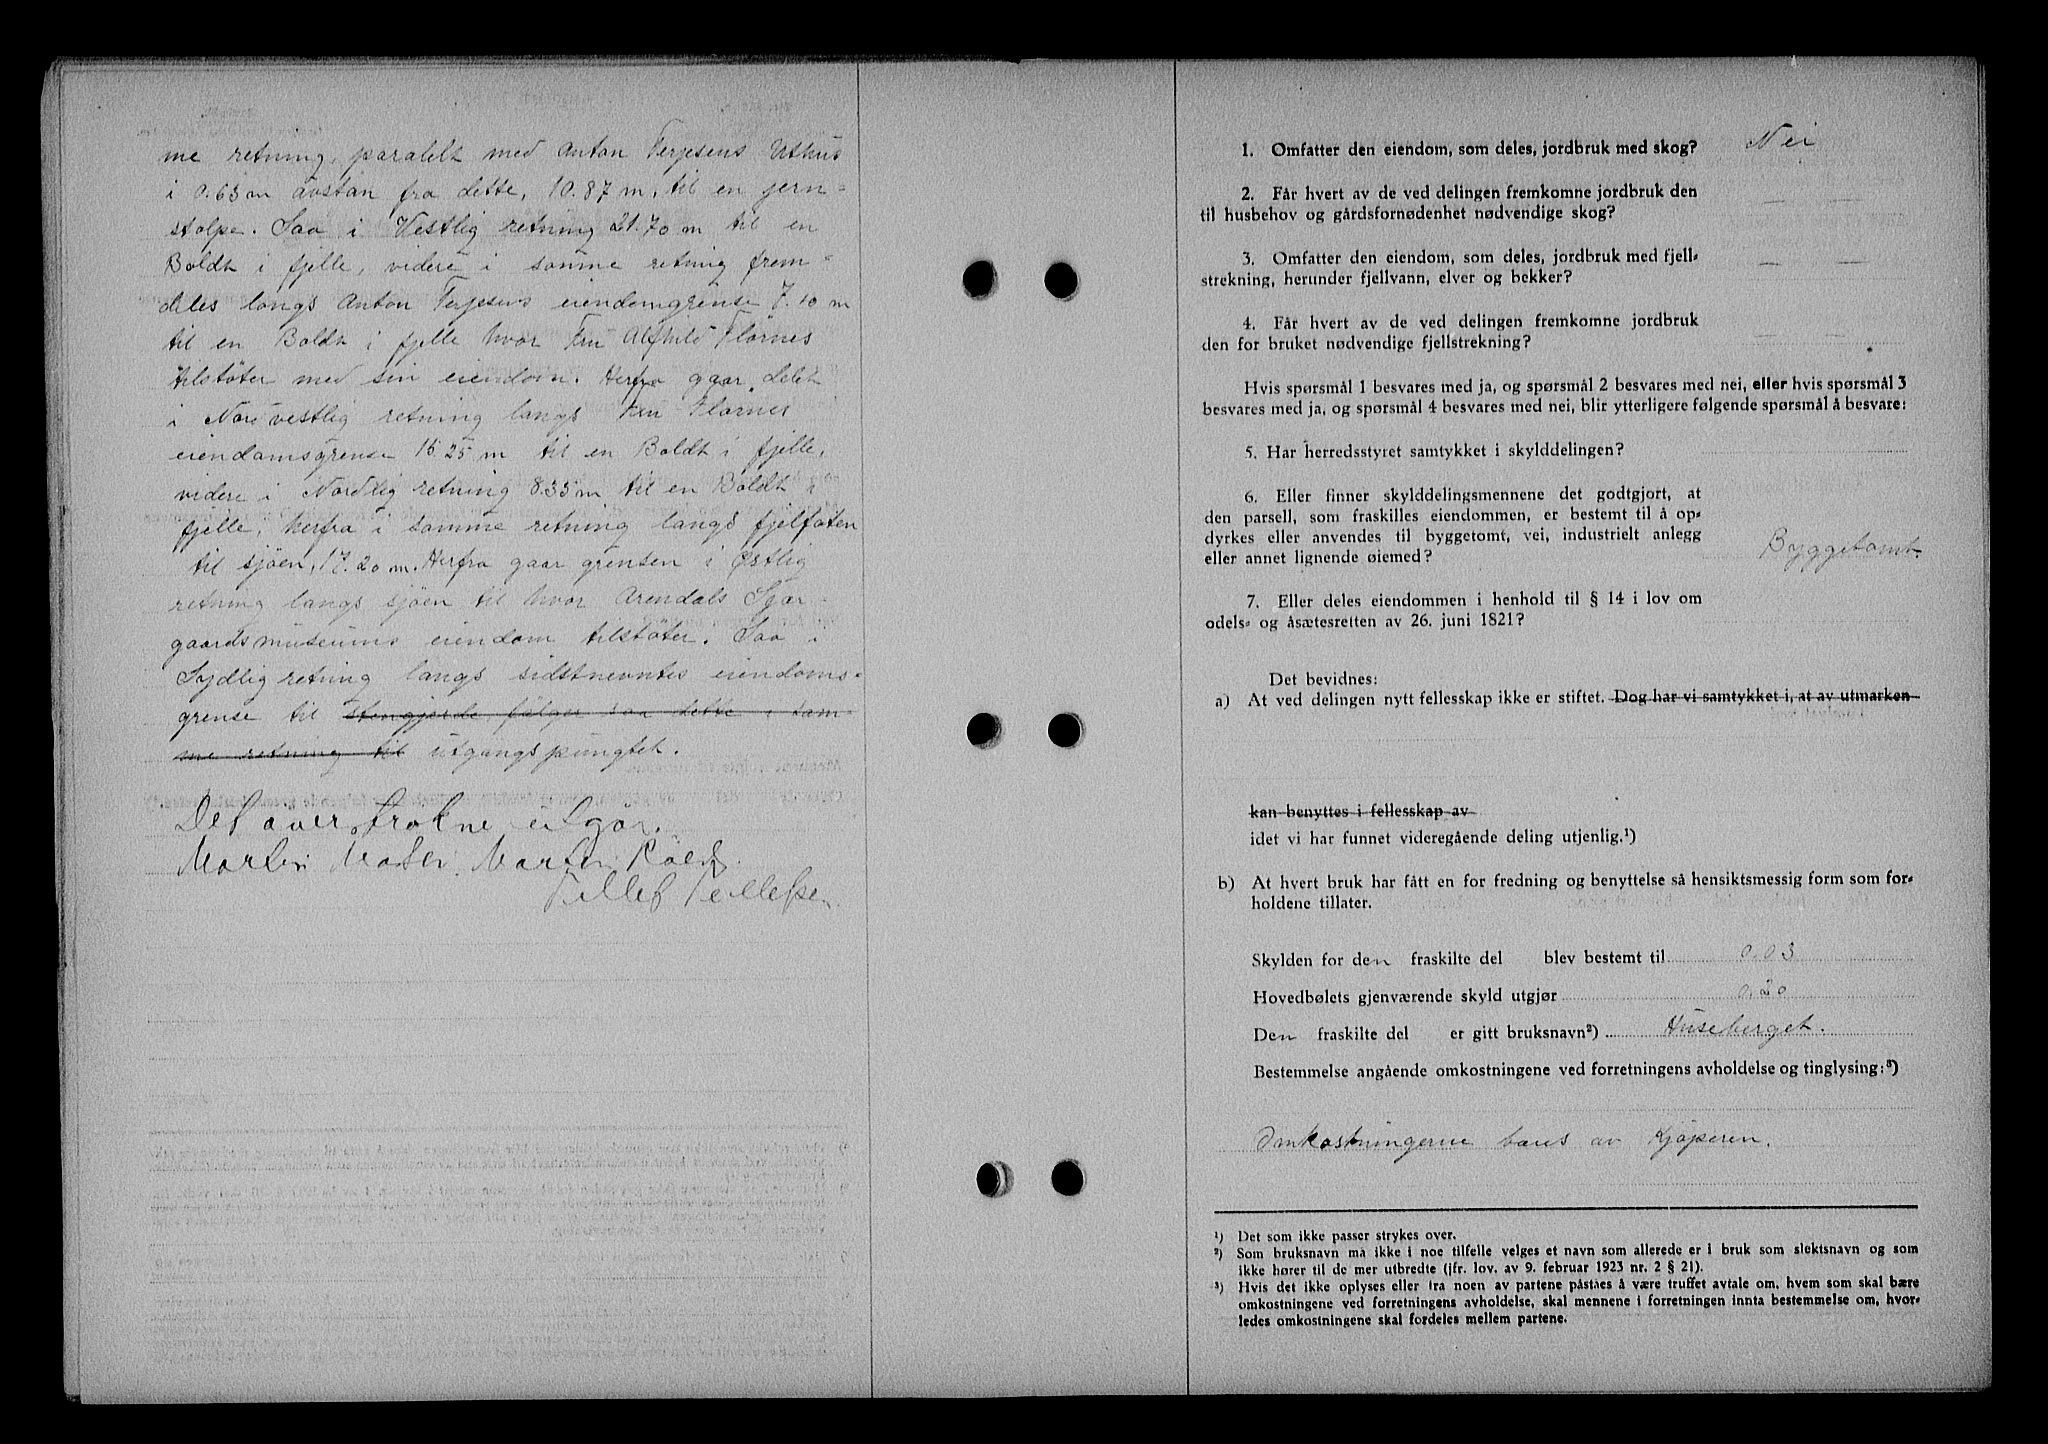 me retning, paralelt med Anton Terjesens Uthus
i 0.63 m avstan fra dette, 10.87 m, til en jern-
stolpe. Saa i Vestlig retning 21.70 m til en
Boldt i fjelle, videre i samme retning frem-
deles langs Anton Terjesens eiendomgrense 7.10 m
til en Boldt i fjelle hvor Fru Alfhild Flörnes
tilstöter med sin eiendom. Herfra gaar delet
i Nordvestlig retning langs Fru Flörnes
eiendomsgrense 16 25 m til en Boldt i fjelle,
videre i Nordlig retning 8.35 m til en Boldt i
fjelle, herfra i samme retning langs fjelfoten
til sjöen, 17.20 m. Herfra gaar grensen i Östlig
retning langs sjöen til hvor Arendals Sjør-
gaardsmuseums eiendom tilstöter. Saa i
Sydlig retning langs sidstnevntes eiendoms-
grense til stengjerde følger saa dette i sam-
me retning til utgangspungtet.
Det overströkne utgår.
Martin Martin
Tellef Tellefsen
1. Omfatter den eiendom, som deles, jordbruk med skog? Nei
2. Får hvert av de ved delingen fremkomne jordbruk den
til husbehov og gårdsfornødenhet nødvendige skog? — —
3. Omfatter den eiendom, som deles, jordbruk med fjell-
strekning, herunder fjellvann, elver og bekker? — —
4. Får hvert av de ved delingen fremkomne jordbruk
den for bruket nødvendige fjellstrekning? — —
Hvis spørsmål 1 besvares med ja, og spørsmål 2 besvares med nei, eller hvis spørsmål 3
besvares med ja, og spørsmål 4 besvares med nei, blir ytterligere følgende spørsmål å besvare:
5. Har herredsstyret samtykket i skylddelingen?
6. Eller finner skylddelingsmennene det godtgjort, at
den parsell, som fraskilles eiendommen, er bestemt til å op-
dyrkes eller anvendes til byggetomt, vei, industrielt anlegg
eller annet lignende øiemed? Byggetomt.
7. Eller deles eiendommen i henhold til § 14 i lov om
odels- og åsætesretten av 26. juni 1821?
Det bevidnes:
a) At ved delingen nytt fellesskap ikke er stiftet. Dog har vi samtykket i, at av utmarken
kan benyttes i fellesskap av
idet vi har funnet videregående deling utjenlig.¹)
b) At hvert bruk har fått en for fredning og benyttelse så hensiktsmessig form som for-
holdene tillater.
Skylden for den fraskilte del blev bestemt til 0.03
Hovedbølets gjenværende skyld utgjør 0.20
Den fraskilte del er gitt bruksnavn²) Huseberget.
Bestemmelse angående omkostningene ved forretningens avholdelse og tinglysing:³)
Omkostningerne bæres av Kjøperen.
¹) Det som ikke passer strykes over.
²) Som bruksnavn må ikke i noe tilfelle velges et navn som allerede er i bruk som slektsnavn og som
ikke hører til de mer utbredte (jfr. lov. av 9. februar 1923 nr. 2 § 21).
³) Hvis det ikke oplyses eller fra noen av partene påståes å være truffet avtale om, hvem som skal bære
omkostningene ved forretningens avholdelse, skal mennene i forretningen innta bestemmelse om, hvor-
ledes omkostningene skal fordeles mellem partene.